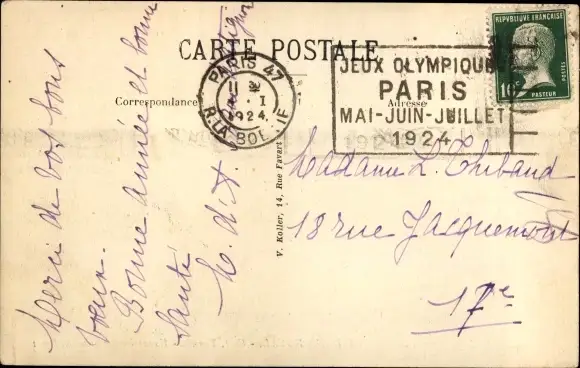 CARTE POSTALE
Correspondance
Adresse
PARIS 47
1924
R. LA BOETIE
JEUX OLYMPIQUES
PARIS
MAI-JUIN-JUILLET
1924
REPUBLIQUE FRANÇAISE
10c
POSTES
PASTEUR
V. Koller, 14, Rue Favart
Merci de vos bons
voeux.
Bonne année et bonne
santé
Madame L. Thibaud
18 rue Jacquemont
17e